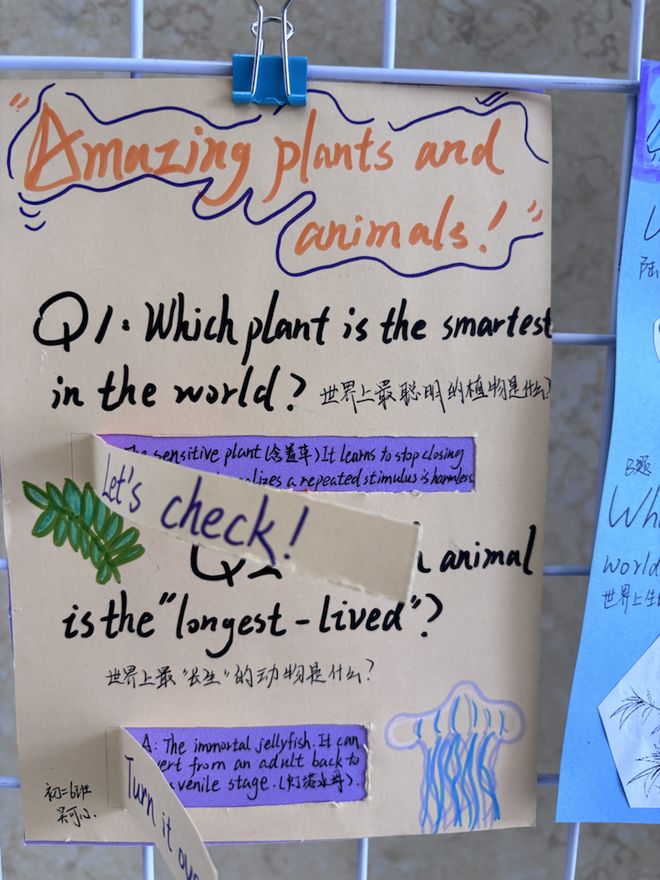 "Amazing plants and
animals!"
Q1: Which plant is the smartest
in the world? 世界上最聪明的植物是什么?
The sensitive plant (含羞草) It learns to stop closing
a repeated stimulus is harmless
Let's check!
Q2 animal
is the "longest-lived"?
世界上最"长生"的动物是什么?
A: The immortal jellyfish. It can
vert from an adult back to
venile stage. (灯塔水母).
Turn it
初二6班
陆
B题
Wh
world
世界上